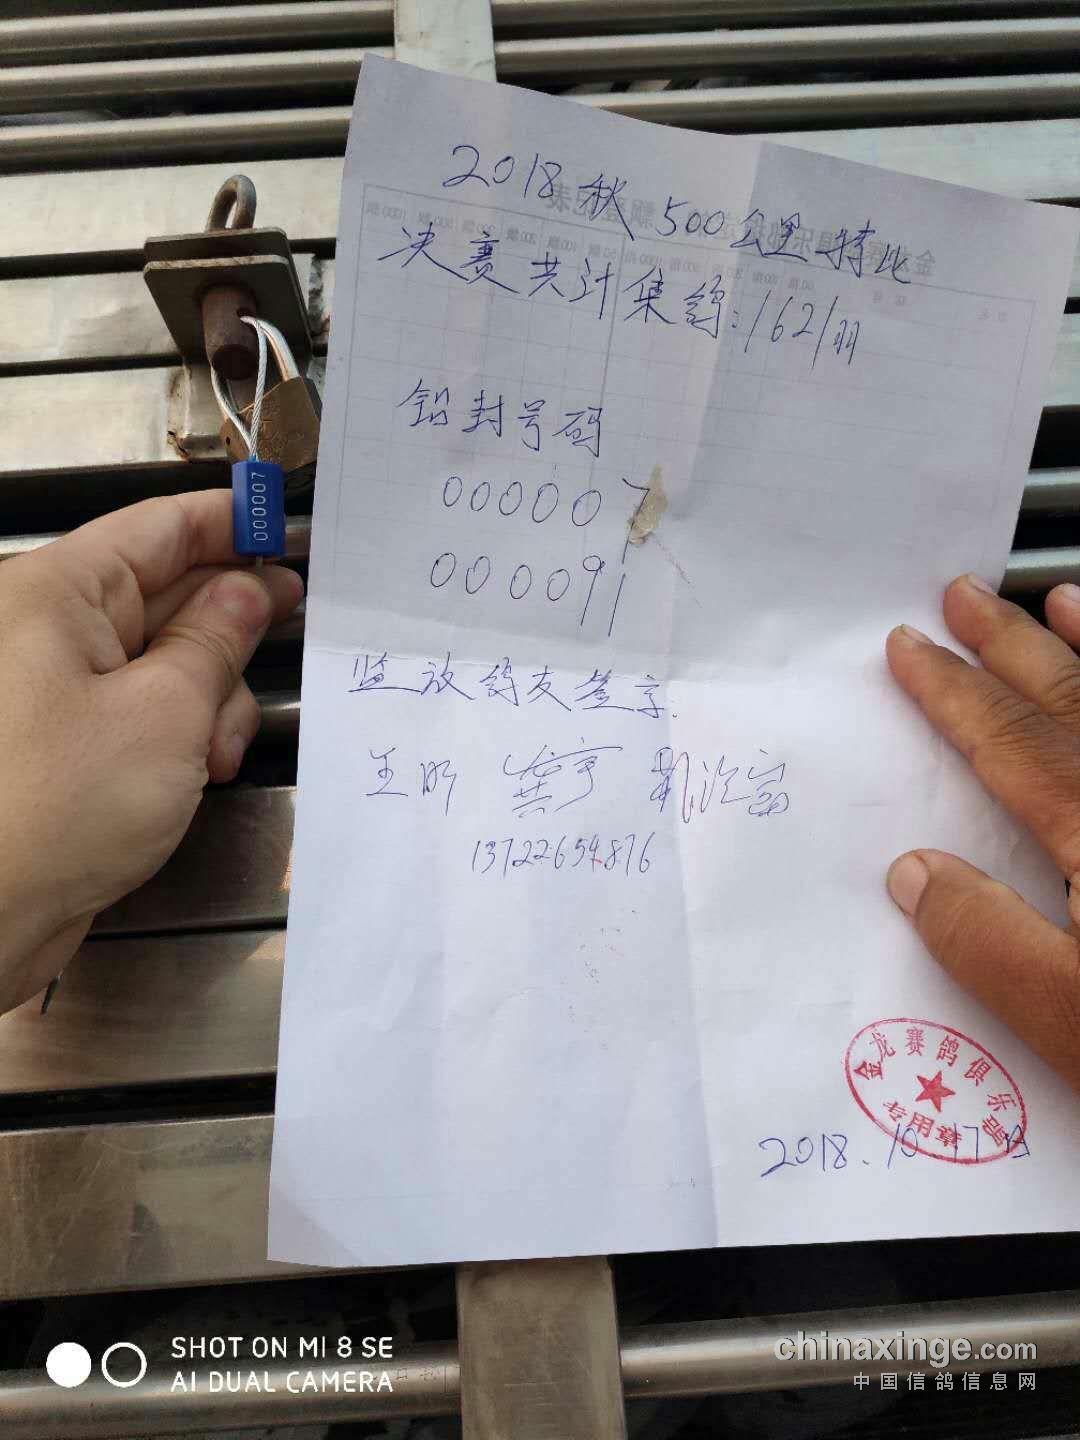 2018秋500公里特比
决赛共计集鸽:1621羽
铅封号码
000007
000091
监放鸽友签字:
王昕 龚宇
13722654876
金龙赛鸽俱乐部
专用章
2018.10.17日
000007
SHOT ON MI 8 SE
AI DUAL CAMERA
chinaxinge.com
中国信鸽信息网